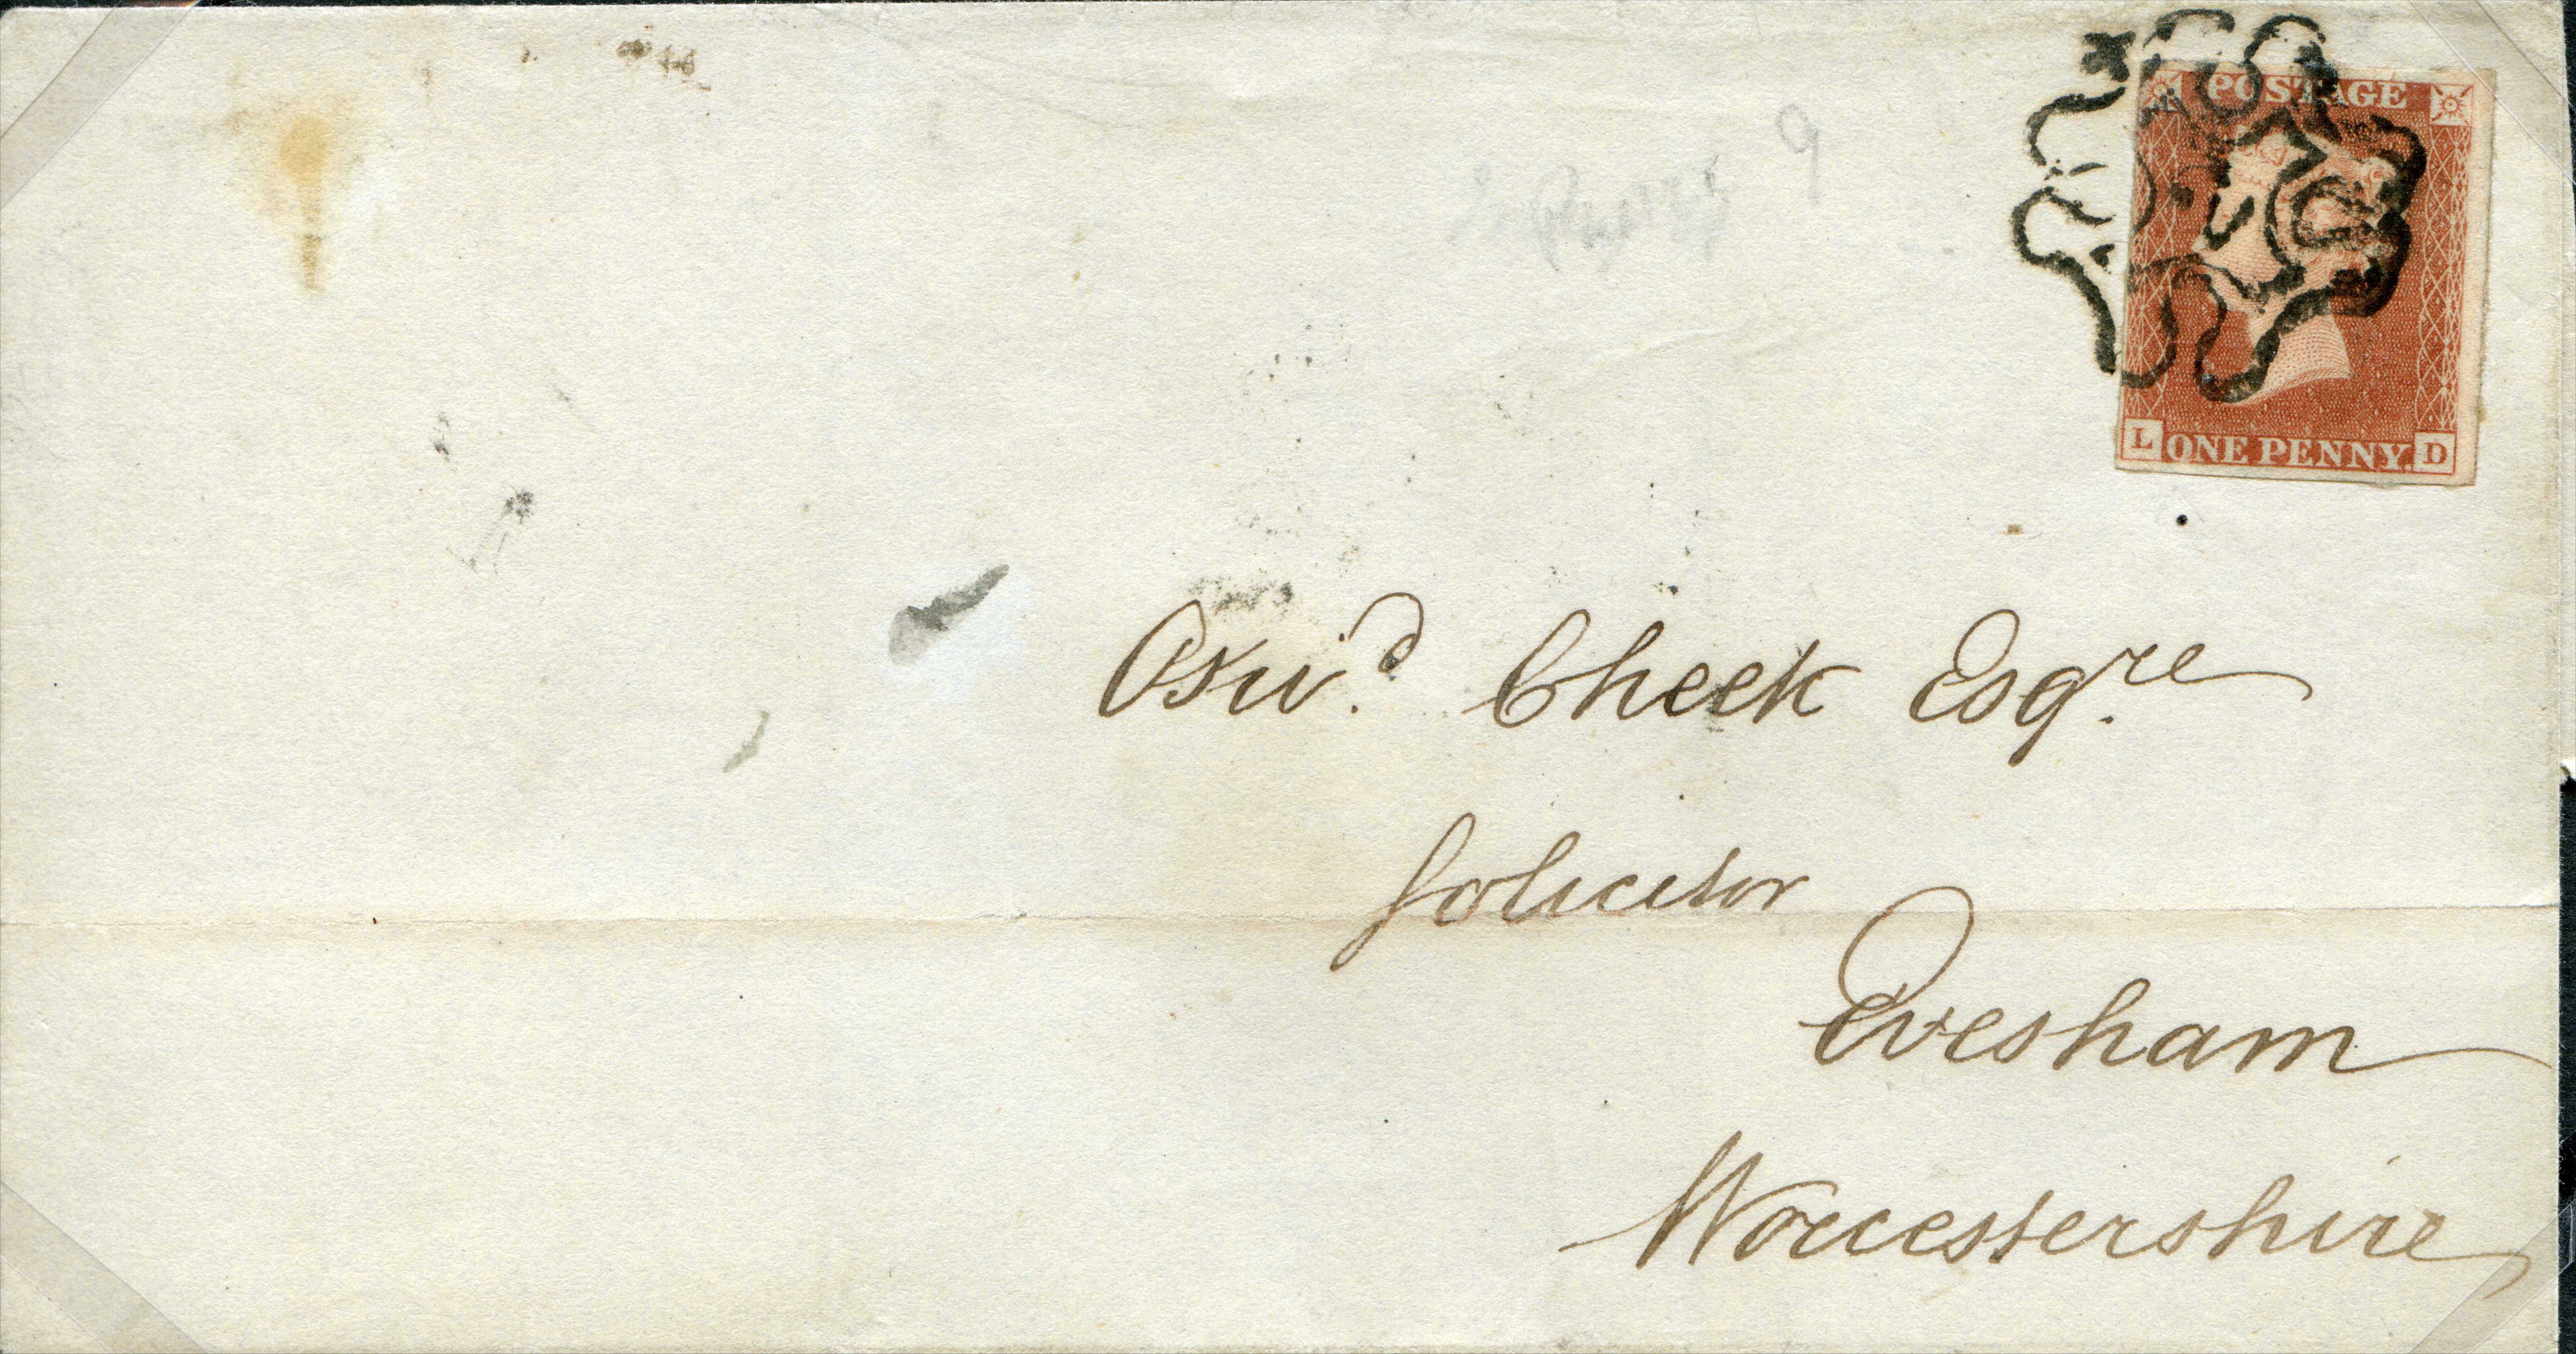 POSTAGE
L ONE PENNY. D
9
Osw.d Cheek Esq.re
Solicitor
Evesham
Worcestershire